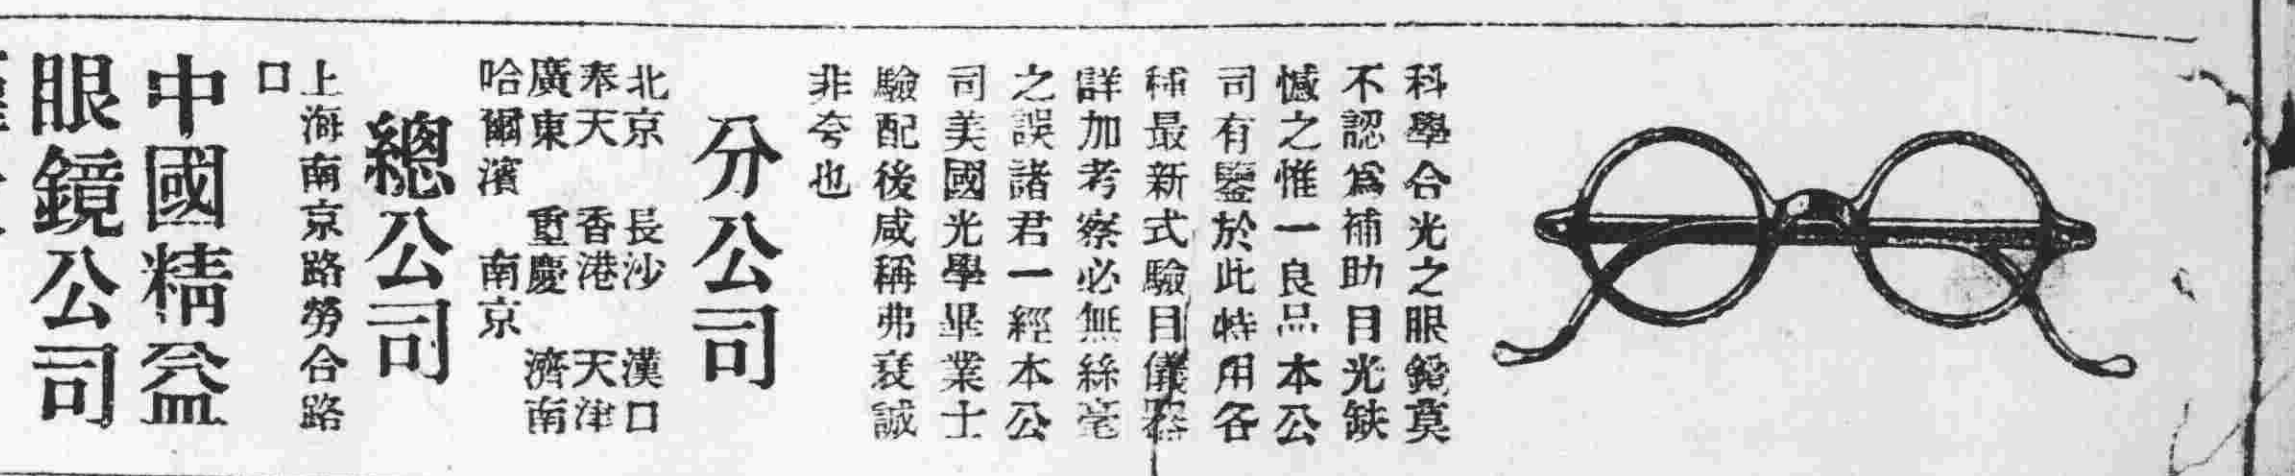 科學合光之眼鏡莫
不認爲補助目光缺
憾之惟一良品本公
司有鑒於此特用各
種最新式驗目儀器
詳加考察必無絲毫
之誤諸君一經本公
司美國光學畢業士
驗配後咸稱弗衰誠
非夸也
分公司
北京 長沙 漢口
奉天 香港 天津
廣東 重慶 濟南
哈爾濱 南京
總公司
上海南京路勞合路
口
中國精益
眼鏡公司